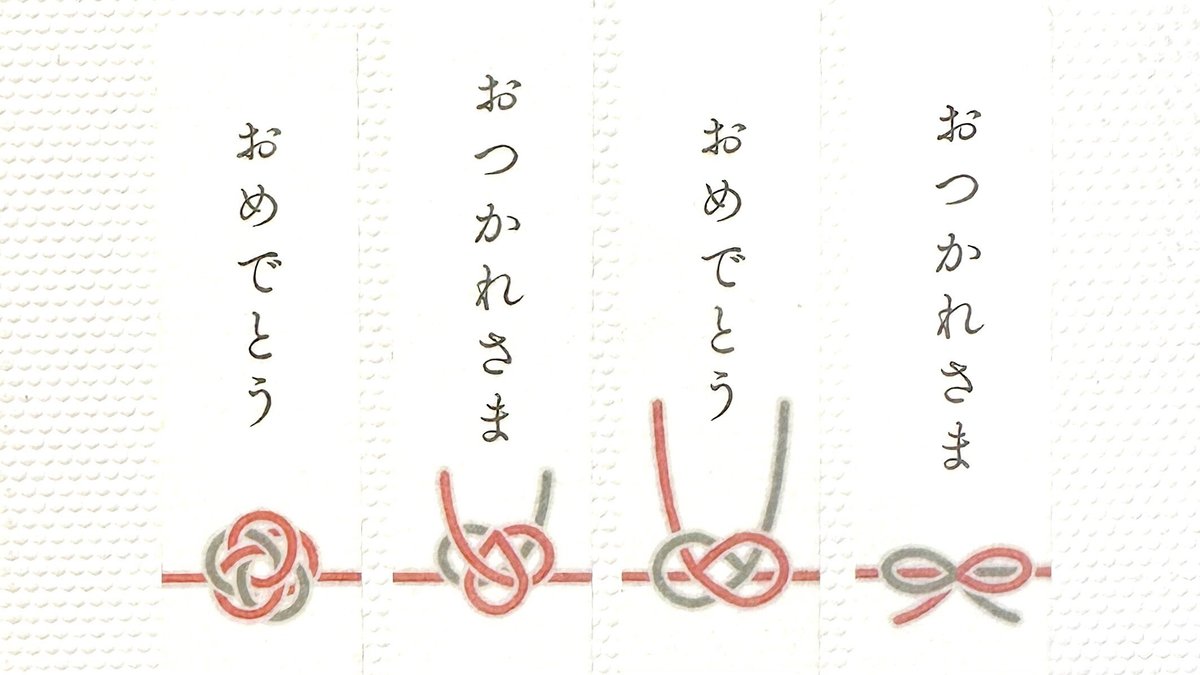 おめでとう
おつかれさま
おめでとう
おつかれさま